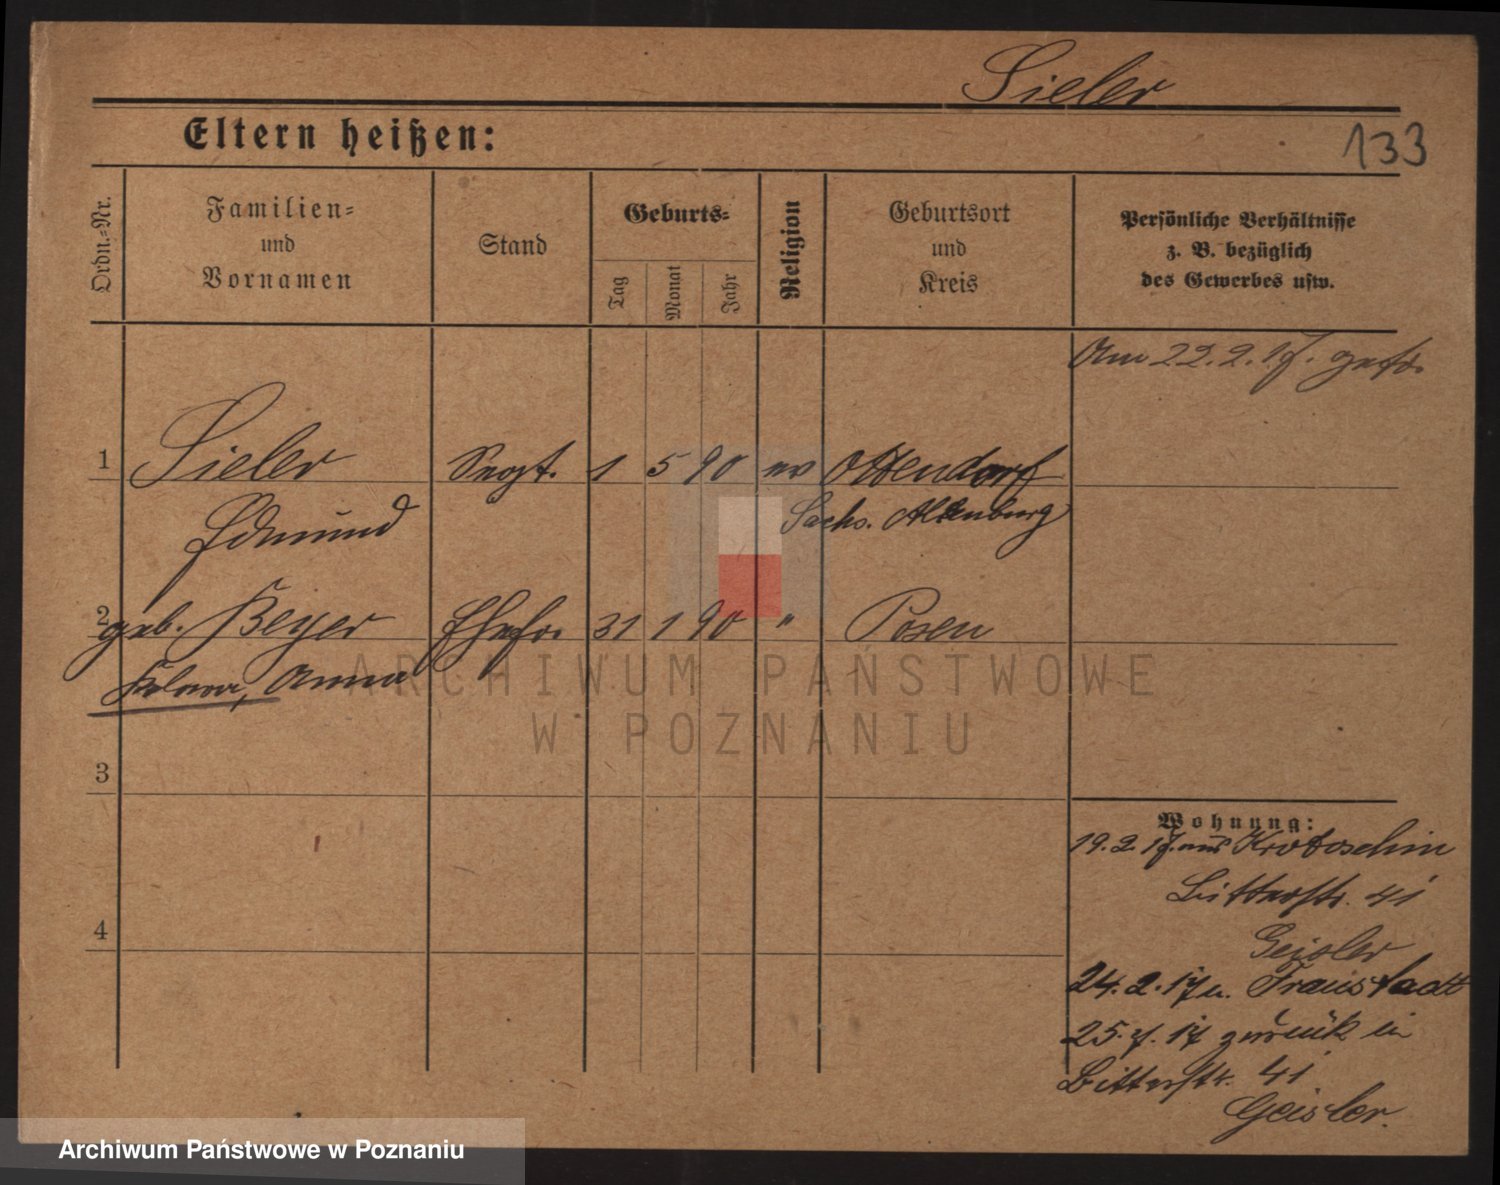 Sieler
Eltern heißen:
133
Ordn.-Nr.
Familien-
und
Vornamen
Stand
Geburts-
Tag
Monat
Jahr
Religion
Geburtsort
und
Kreis
Persönliche Verhältnisse
z. B. bezüglich
des Gewerbes usw.
Am 22.2.17. getr.
1 Sieler Sergt. 1 5 90 ev Ottendorf
Edmund Sachs. Altenburg
2 geb. Beyer Ehefr. 31 1 90 " Posen
Anna
3
4
Wohnung:
19.2.17. aus Krotoschin
Bitterstr. 41
Geisler
24.2.17 n. Fraustadt
25.7.17 zurück in
Bitterstr. 41
Geisler.
ARCHIWUM PAŃSTWOWE
W POZNANIU
Archiwum Państwowe w Poznaniu